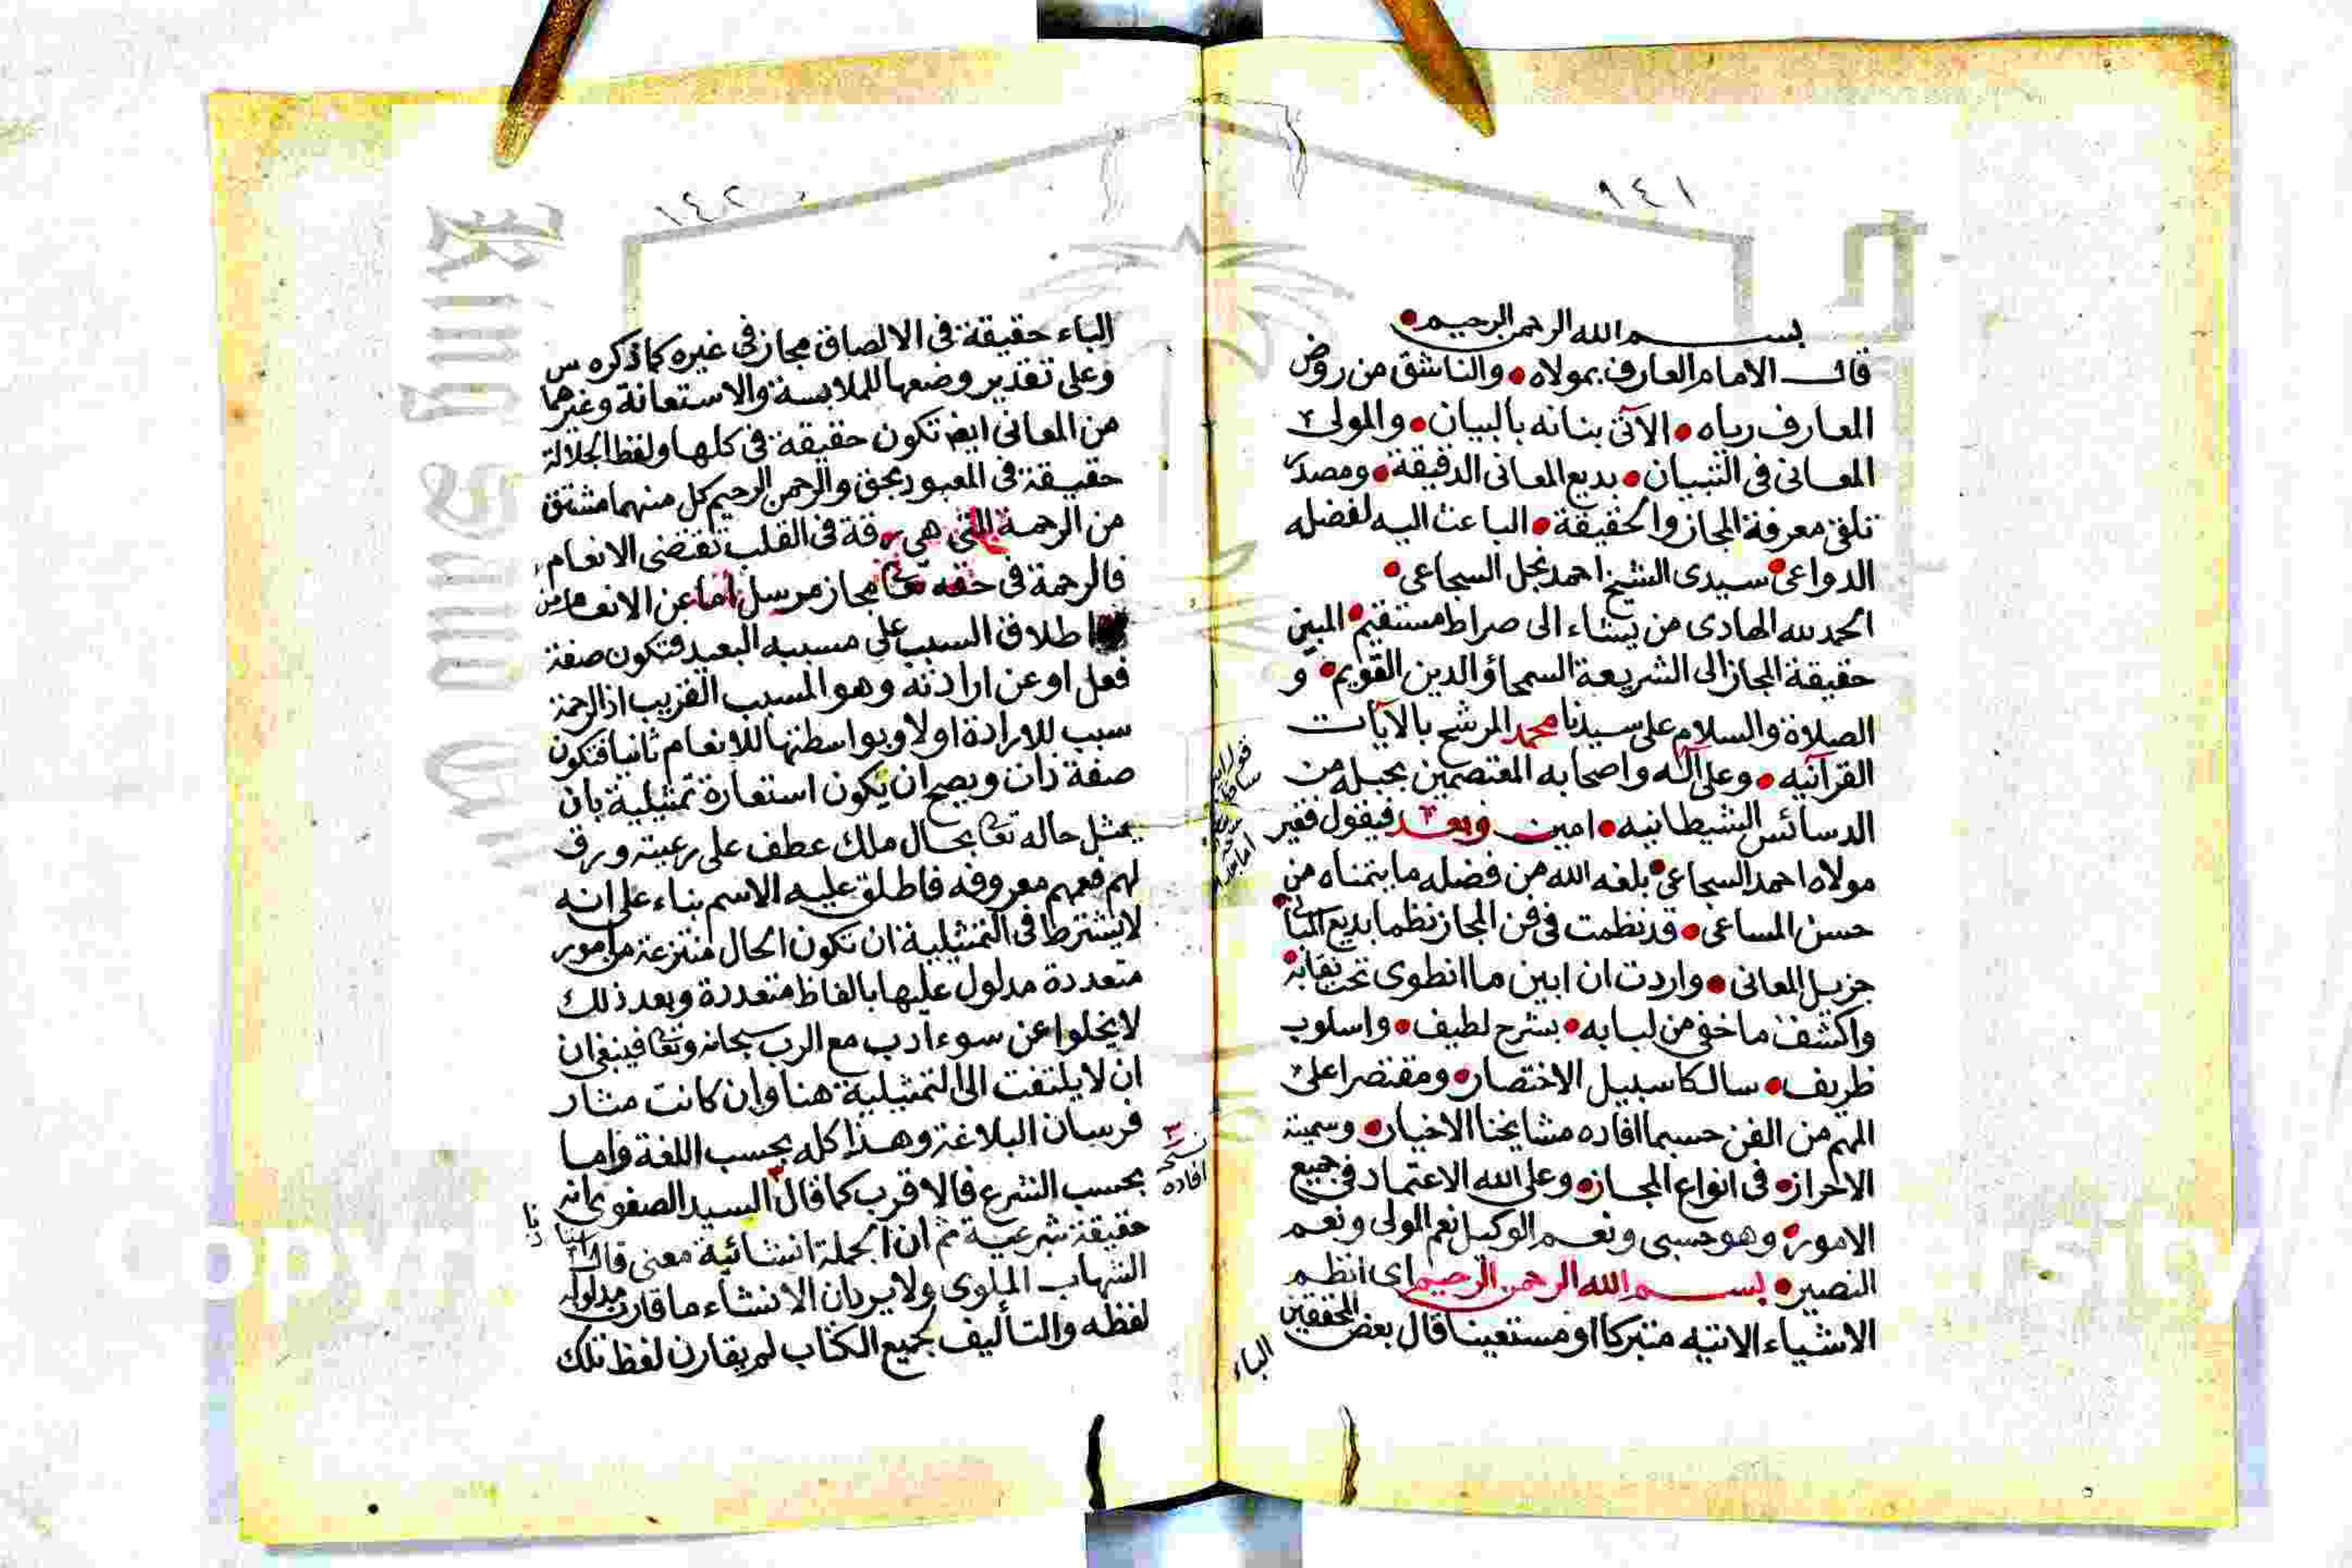 ١٤١
بسم الله الرحمن الرحيم
قال الامام العارف بمولاه والناشق من روض
المعارف رياه الآتى بنانه بالبيان والمولى
المعانى فى التبيان بديع المعانى الدقيقة ومصدر
تلقى معرفة المجاز والحقيقة الباعث اليه لفضله
الدواعى سيدى الشيخ احمد نجل السجاعى
الحمد لله الهادى من يشاء الى صراط مستقيم المبين
حقيقة المجاز الى الشريعة السمحا والدين القويم و
الصلاة والسلام على سيدنا محمد المرشح بالآيات
القرآنيه وعلى آله واصحابه المعتصمين بحبله من
الدسائس الشيطانيه امين وبعد فيقول فقير
مولاه احمد السجاعى بلغه الله من فضله ما يتمناه من
حسن المساعى قد نظمت فى فن المجاز نظما بديع
جزيل المعانى واردت ان ابين ما انطوى تحت نقابه
واكشف ما خفى من لبابه بشرح لطيف واسلوب
ظريف سالكا سبيل الاختصار ومقتصرا على
المهم من الفن حسبما افاده مشايخنا الاخيار وسميته
الاحراز فى انواع المجاز وعلى الله الاعتماد فى جميع
الامور وهو حسبى ونعم الوكيل نعم المولى ونعم
النصير بسم الله الرحمن الرحيم اى انظم
الاشياء الاتيه متبركا او مستعينا قال بعض المحققين
الباء
١٤٢
الباء حقيقة فى الالصاق مجاز فى غيره كما ذكره س
وعلى تقدير وضعها للملابسة والاستعانة وغيرهما
من المعانى ايض تكون حقيقة فى كلها ولفظ الجلالة
حقيقة فى المعبود بحق والرحمن الرحيم كل منهما مشتق
من الرحمة التى هى رقة فى القلب تقتضى الانعام
فالرحمة فى حقه تعا مجاز مرسل اما عن الانعام من
اطلاق السبب على مسببه البعيد فتكون صفة
فعل او عن ارادته وهو المسبب القريب اذ الرحمة
سبب للارادة اولا وبواسطتها للانعام ثانيا فتكون
صفة ذات ويصح ان يكون استعارة تمثيلية بان
يمثل حاله تعا بحال ملك عطف على رعيته ورق
لهم فعمهم معروفه فاطلق عليه الاسم بناء على انه
لا يشترط فى التمثيلية ان تكون الحال منتزعة من امور
متعددة مدلول عليها بالفاظ متعددة وبعد ذلك
لا يخلوا عن سوء ادب مع الرب سبحانه وتعا فينبغى ان
ان لا يلتفت الى التمثيلية هنا وان كانت مثار
فرسان البلاغة وهذا كله بحسب اللغة واما
بحسب الشرع فالاقرب كما قال السيد الصفوى انه
حقيقة شرعية ثم ان الجملة انشائية معنى قال
الشهاب الملوى ولا يرد ان الانشاء ما قارن مدلوله
لفظه والتأليف لجميع الكتاب لم يقارن لفظ تلك
نسخه
افاده